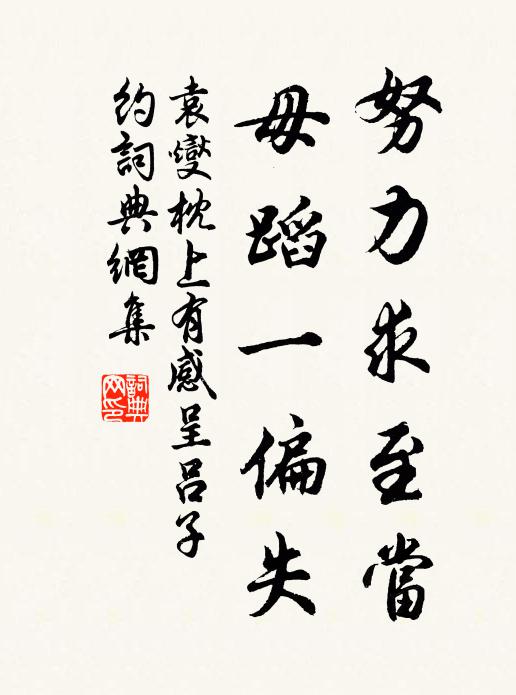 努力求至當
毋蹈一偏失
袁燮枕上有感呈呂子
約詞典網集
詞典網印